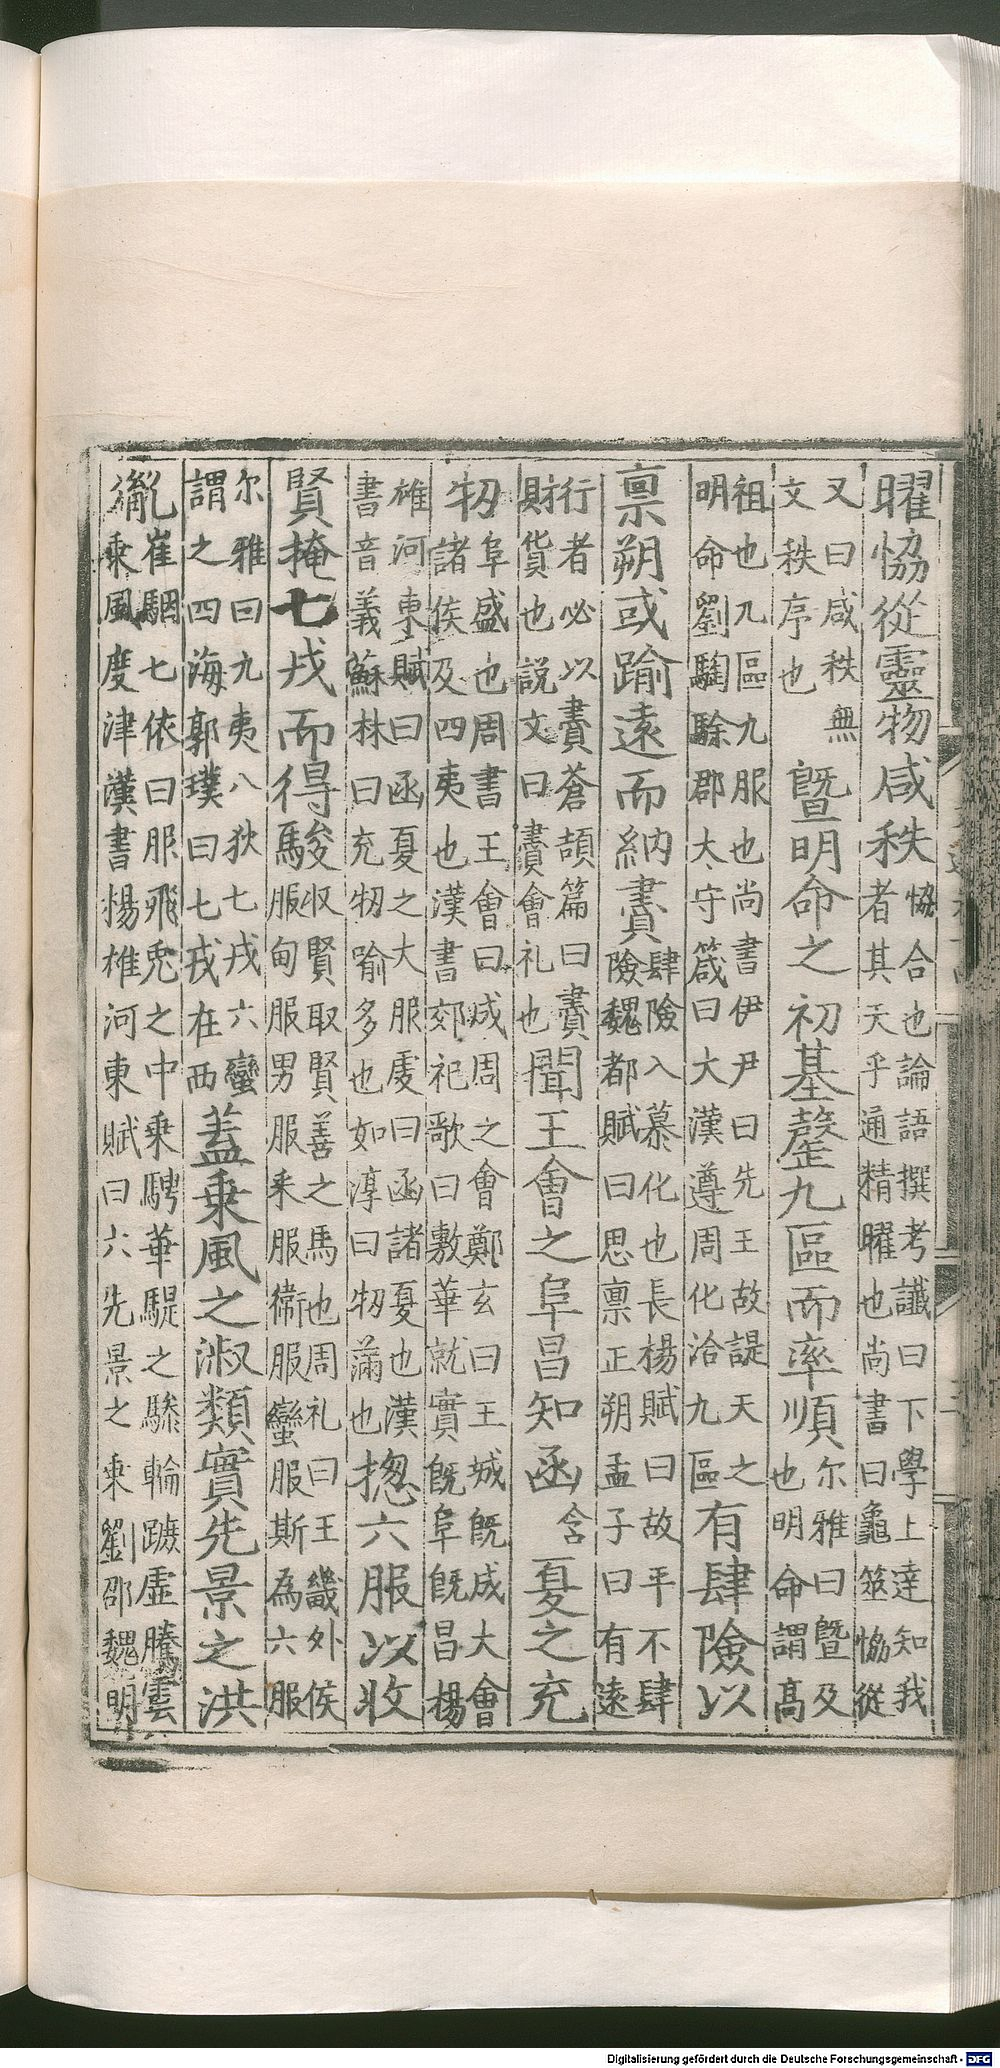 曜恊從靈物咸秩恊合也論語撰考讖曰下學上達知我者其天乎通精曜也尚書曰龜筮恊從
又曰咸秩無文秩序也曁明命之初基罄九區而率順尔雅曰曁及也明命謂高
祖也九區九服也尚書伊尹曰先王故諟天之明命劉騊駼郡大守箴曰大漢遵周化洽九區有肆險以
禀朔或踰遠而納賮肆險入慕化也長楊賦曰故平不肆險魏都賦曰思禀正朔孟子曰有遠
行者必以賮蒼頡篇曰賮財貨也説文曰賮會礼也聞王會之阜昌知函含夏之充
牣阜盛也周書王會曰成周之會鄭玄曰王城既成大會諸侯及四夷也漢書郊祀歌曰敷華就實既阜既昌楊
雄河東賦曰函夏之大服虔曰函諸夏也漢書音義蘇林曰充牣喻多也如淳曰牣滿也揔六服以收
賢掩七戎而得駿収賢取賢善之馬也周礼曰王畿外侯服甸服男服采服衛服蠻服斯為六服
尔雅曰九夷八狄七戎六蠻謂之四海郭璞曰七戎在西盖乗風之淑類實先景之洪
胤崔駰七依曰服飛兎之中乗騁華騠之驂輪踱虛騰雲乗風度津漢書楊雄河東賦曰六先景之乗劉邵魏明
Digitalisierung gefördert durch die Deutsche Forschungsgemeinschaft - DFG